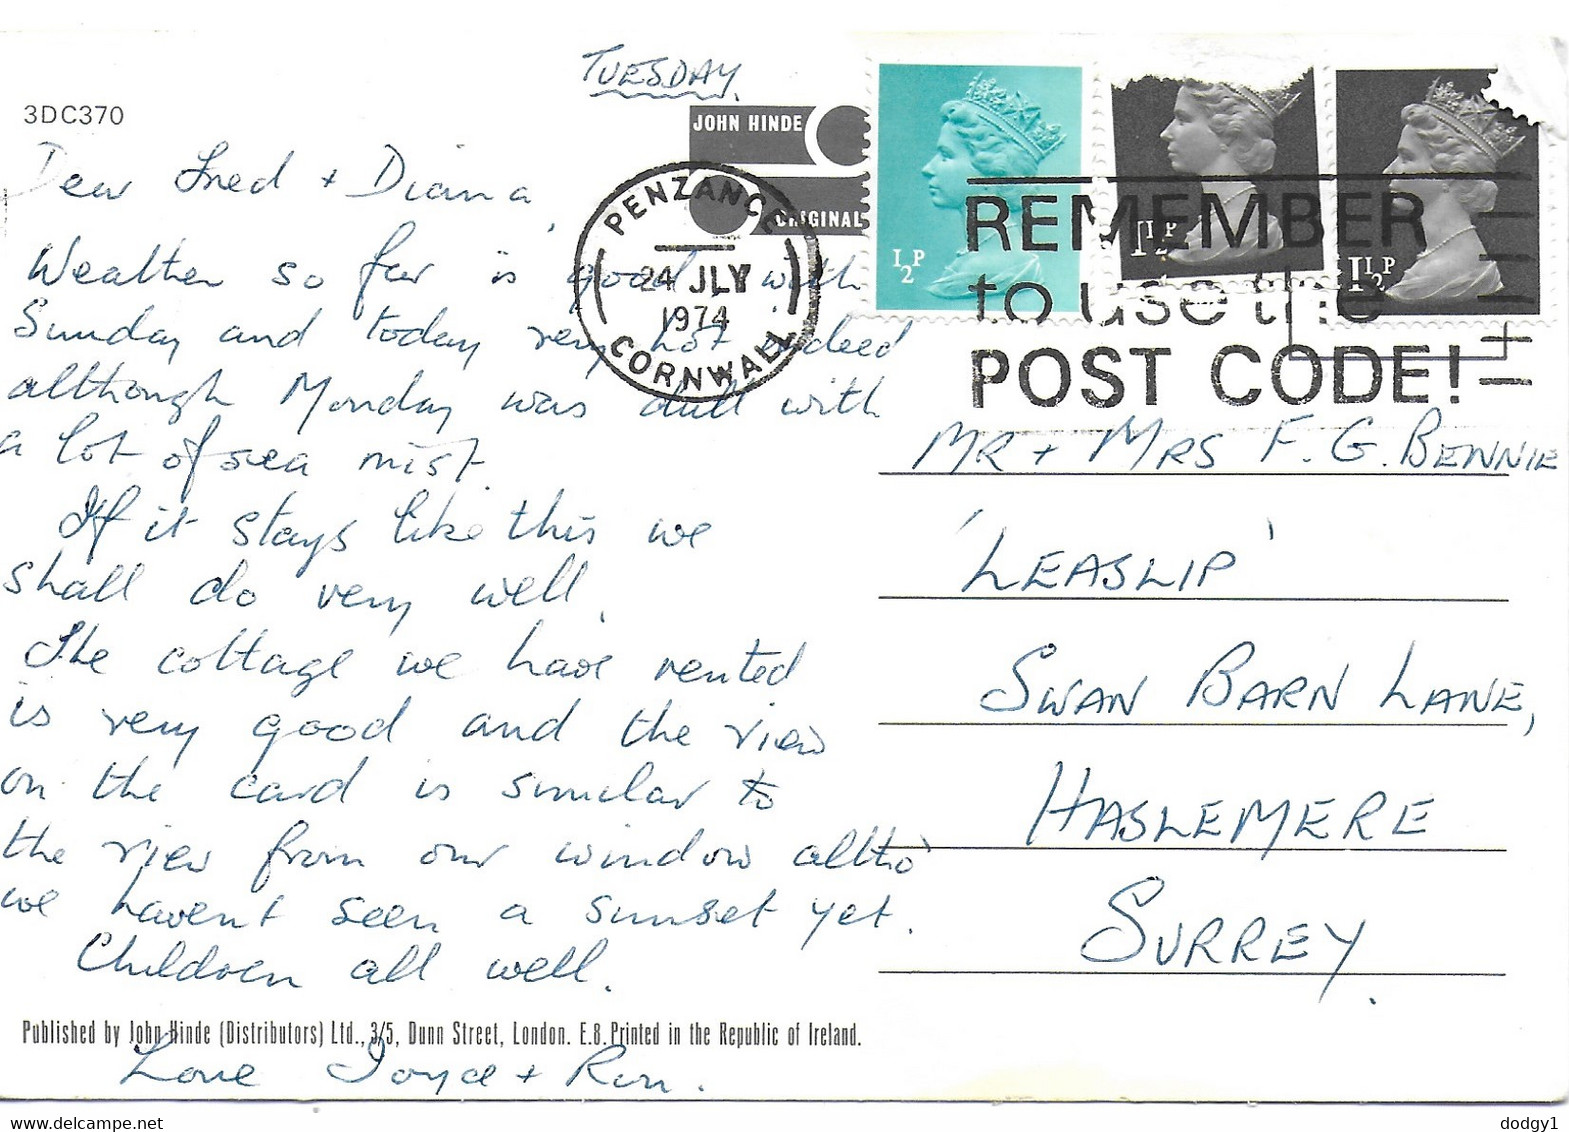 TUESDAY.
3DC370
JOHN HINDE
ORIGINAL
PENZANCE
24 JLY
1974
CORNWALL
½P
1½P
1½P
REMEMBER
to use the
POST CODE!
Dear Fred + Diana,
Weather so far is good, with
Sunday and today very hot indeed
although Monday was dull with
a lot of sea mist.
If it stays like this we
shall do very well.
The cottage we have rented
is very good and the view
on the card is similar to
the view from our window altho'
we haven't seen a sunset yet.
Children all well.
Published by John Hinde (Distributors) Ltd., 3/5, Dunn Street, London. E.8. Printed in the Republic of Ireland.
Love Joyce + Ron.
MR + MRS F. G. BENNIE
'LEASLIP'
SWAN BARN LANE,
HASLEMERE
SURREY.
www.delcampe.net
dodgy1